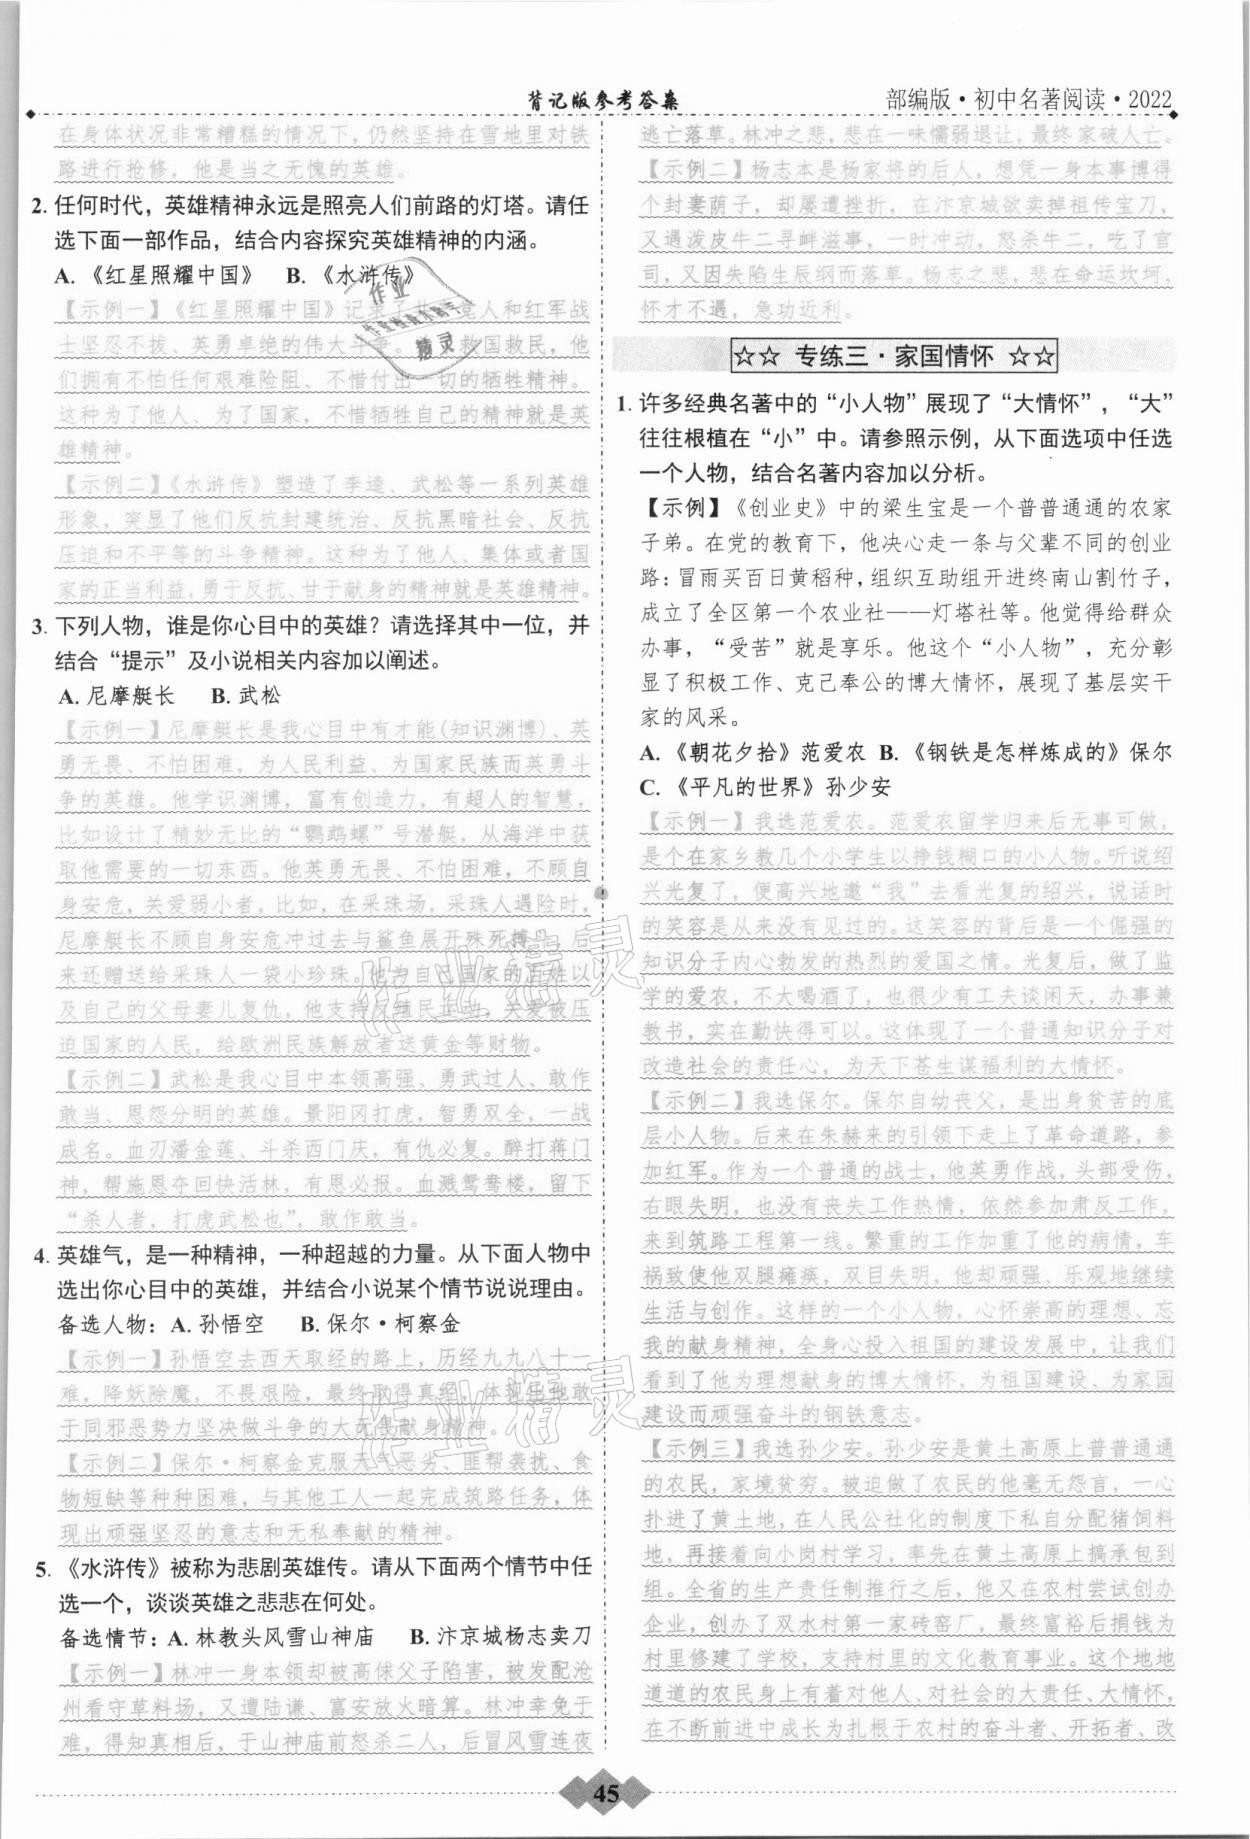 背记版参考答案
部编版·初中名著阅读·2022
在身体状况非常糟糕的情况下，仍然坚持在雪地里对铁
路进行抢修，他是当之无愧的英雄。
2. 任何时代，英雄精神永远是照亮人们前路的灯塔。请任
选下面一部作品，结合内容探究英雄精神的内涵。
A.《红星照耀中国》 B.《水浒传》
【示例一】《红星照耀中国》记录了共产党人和红军战
士坚忍不拔、英勇卓绝的伟大斗争。 救国救民，他
们拥有不怕任何艰难险阻、不惜付出一切的牺牲精神。
这种为了他人、为了国家，不惜牺牲自己的精神就是英
雄精神。
【示例二】《水浒传》塑造了李逵、武松等一系列英雄
形象，突显了他们反抗封建统治、反抗黑暗社会、反抗
压迫和不平等的斗争精神。这种为了他人、集体或者国
家的正当利益，勇于反抗、甘于献身的精神就是英雄精神。
3. 下列人物，谁是你心目中的英雄？请选择其中一位，并
结合“提示”及小说相关内容加以阐述。
A. 尼摩艇长 B. 武松
【示例一】尼摩艇长是我心目中有才能(知识渊博)、英
勇无畏、不怕困难，为人民利益、为国家民族而英勇斗
争的英雄。他学识渊博，富有创造力，有超人的智慧，
比如设计了精妙无比的“鹦鹉螺”号潜艇，从海洋中获
取他需要的一切东西。他英勇无畏、不怕困难，不顾自
身安危，关爱弱小者，比如，在采珠场，采珠人遇险时，
尼摩艇长不顾自身安危冲过去与鲨鱼展开殊死搏斗，后
来还赠送给采珠人一袋小珍珠。他为自己国家的百姓以
及自己的父母妻儿复仇，他支持反殖民运动，关爱被压
迫国家的人民，给欧洲民族解放者送黄金等财物。
【示例二】武松是我心目中本领高强、勇武过人、敢作
敢当、恩怨分明的英雄。景阳冈打虎，智勇双全，一战
成名。血刃潘金莲、斗杀西门庆，有仇必复。醉打蒋门
神，帮施恩夺回快活林，有恩必报。血溅鸳鸯楼，留下
“杀人者，打虎武松也”，敢作敢当。
4. 英雄气，是一种精神，一种超越的力量。从下面人物中
选出你心目中的英雄，并结合小说某个情节说说理由。
备选人物：A. 孙悟空 B. 保尔·柯察金
【示例一】孙悟空去西天取经的路上，历经九九八十一
难，降妖除魔，不畏艰险，最终取得真经，体现出他敢
于同邪恶势力坚决做斗争的大无畏献身精神。
【示例二】保尔·柯察金克服天气恶劣、匪帮袭扰、食
物短缺等种种困难，与其他工人一起完成筑路任务，体
现出顽强坚忍的意志和无私奉献的精神。
5. 《水浒传》被称为悲剧英雄传。请从下面两个情节中任
选一个，谈谈英雄之悲悲在何处。
备选情节：A. 林教头风雪山神庙 B. 汴京城杨志卖刀
【示例一】林冲一身本领却被高俅父子陷害，被发配沧
州看守草料场，又遭陆谦、富安放火暗算。林冲幸免于
难，得知真相后，于山神庙前怒杀二人，后冒风雪连夜
逃亡落草。林冲之悲，悲在一味懦弱退让，最终家破人亡。
【示例二】杨志本是杨家将的后人，想凭一身本事博得
个封妻荫子，却屡遭挫折，在汴京城欲卖掉祖传宝刀，
又遇泼皮牛二寻衅滋事，一时冲动，怒杀牛二，吃了官
司，又因失陷生辰纲而落草。杨志之悲，悲在命运坎坷，
怀才不遇，急功近利。
☆☆ 专练三·家国情怀 ☆☆
1. 许多经典名著中的“小人物”展现了“大情怀”，“大”
往往根植在“小”中。请参照示例，从下面选项中任选
一个人物，结合名著内容加以分析。
【示例】《创业史》中的梁生宝是一个普普通通的农家
子弟。在党的教育下，他决心走一条与父辈不同的创业
路：冒雨买百日黄稻种，组织互助组开进终南山割竹子，
成立了全区第一个农业社——灯塔社等。他觉得给群众
办事，“受苦”就是享乐。他这个“小人物”，充分彰
显了积极工作、克己奉公的博大情怀，展现了基层实干
家的风采。
A.《朝花夕拾》范爱农 B.《钢铁是怎样炼成的》保尔
C.《平凡的世界》孙少安
【示例一】我选范爱农。范爱农留学归来后无事可做，
是个在家乡教几个小学生以挣钱糊口的小人物。听说绍
兴光复了，便高兴地邀“我”去看光复的绍兴，说话时
的笑容是从来没有见过的。这笑容的背后是一个倔强的
知识分子内心勃发的热烈的爱国之情。光复后，做了监
学的爱农，不大喝酒了，也很少有工夫谈闲天，办事兼
教书，实在勤快得可以。这体现了一个普通知识分子对
改造社会的责任心，为天下苍生谋福利的大情怀。
【示例二】我选保尔。保尔自幼丧父，是出身贫苦的底
层小人物。后来在朱赫来的引领下走上了革命道路，参
加红军。作为一个普通的战士，他英勇作战，头部受伤，
右眼失明，也没有丧失工作热情，依然参加肃反工作，
来到筑路工程第一线。繁重的工作加重了他的病情，车
祸致使他双腿瘫痪，双目失明，他却顽强、乐观地继续
生活与创作。这样的一个小人物，心怀崇高的理想、忘
我的献身精神，全身心投入祖国的建设发展中，让我们
看到了他为理想献身的博大情怀，为祖国建设、为家园
建设而顽强奋斗的钢铁意志。
【示例三】我选孙少安。孙少安是黄土高原上普普通通
的农民，家境贫穷。被迫做了农民的他毫无怨言，一心
扑进了黄土地，在人民公社化的制度下私自分配猪饲料
地，再接着向小岗村学习，率先在黄土高原上搞承包到
组。全省的生产责任制推行之后，他又在农村尝试创办
企业，创办了双水村第一家砖窑厂，最终富裕后捐钱为
村里修建了学校，支持村里的文化教育事业。这个地地
道道的农民身上有着对他人、对社会的大责任、大情怀，
在不断前进中成长为扎根于农村的奋斗者、开拓者、改
45
作业
精灵
作业精灵
作业精灵